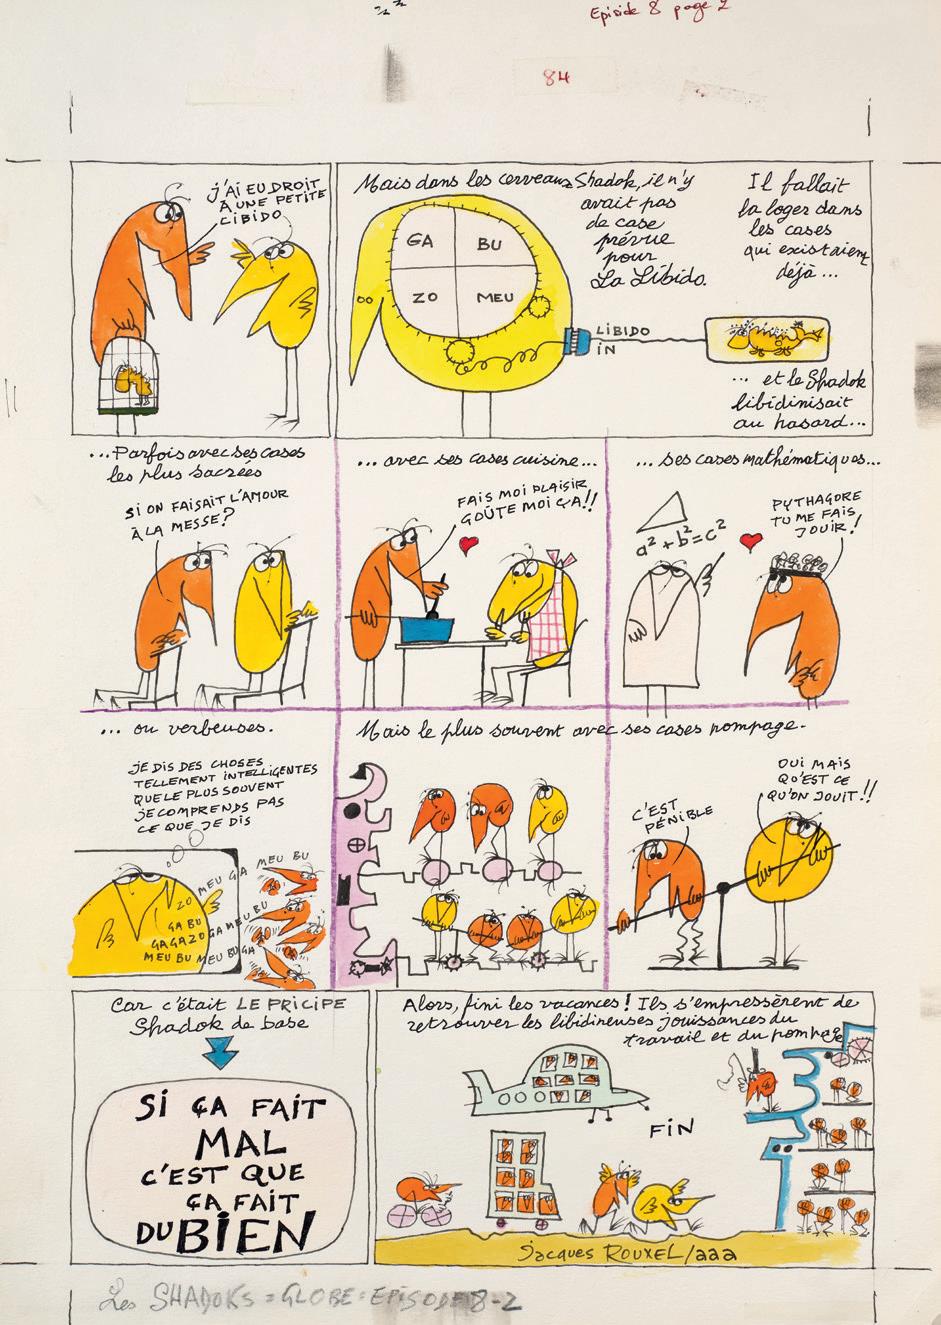 Episode 8 page 2
84
J'AI EU DROIT
À UNE PETITE
LIBIDO
Mais dans les cerveaux Shadok, il n'y
avait pas
de case
prévue
pour
La Libido.
Il fallait
la loger dans
les cases
qui existaient
déjà...
GA BU
ZO MEU
LIBIDO
IN
... et le Shadok
libidinisait
au hasard...
...Parfois avec ses cases
les plus sacrées
SI ON FAISAIT L'AMOUR
À LA MESSE?
...avec ses cases cuisine...
FAIS MOI PLAISIR
GOÛTE MOI ÇA!!
...ses cases mathématiques...
a²+b²=c²
PYTHAGORE
TU ME FAIS
JOUIR!
... ou verbeuses.
JE DIS DES CHOSES
TELLEMENT INTELLIGENTES
QUE LE PLUS SOUVENT
JE COMPRENDS PAS
CE QUE JE DIS
ZO MEU GA MEU BU
GA BU
GAGAZO GA MEU BU
MEU BU MEU BU GA
Mais le plus souvent avec ses cases pompage.
C'EST
PÉNIBLE
OUI MAIS
QU'EST CE
QU'ON JOUIT!!
Car c'était LE PRICIPE
Shadok de base
SI ÇA FAIT
MAL
C'EST QUE
ÇA FAIT
DU BIEN
Alors, fini les vacances! Ils s'empressèrent de
retrouver les libidineuses jouissances du
travail et du pompage
FIN
Jacques ROUXEL/aaa
Les SHADOKS = GLOBE = EPISODE 8-2